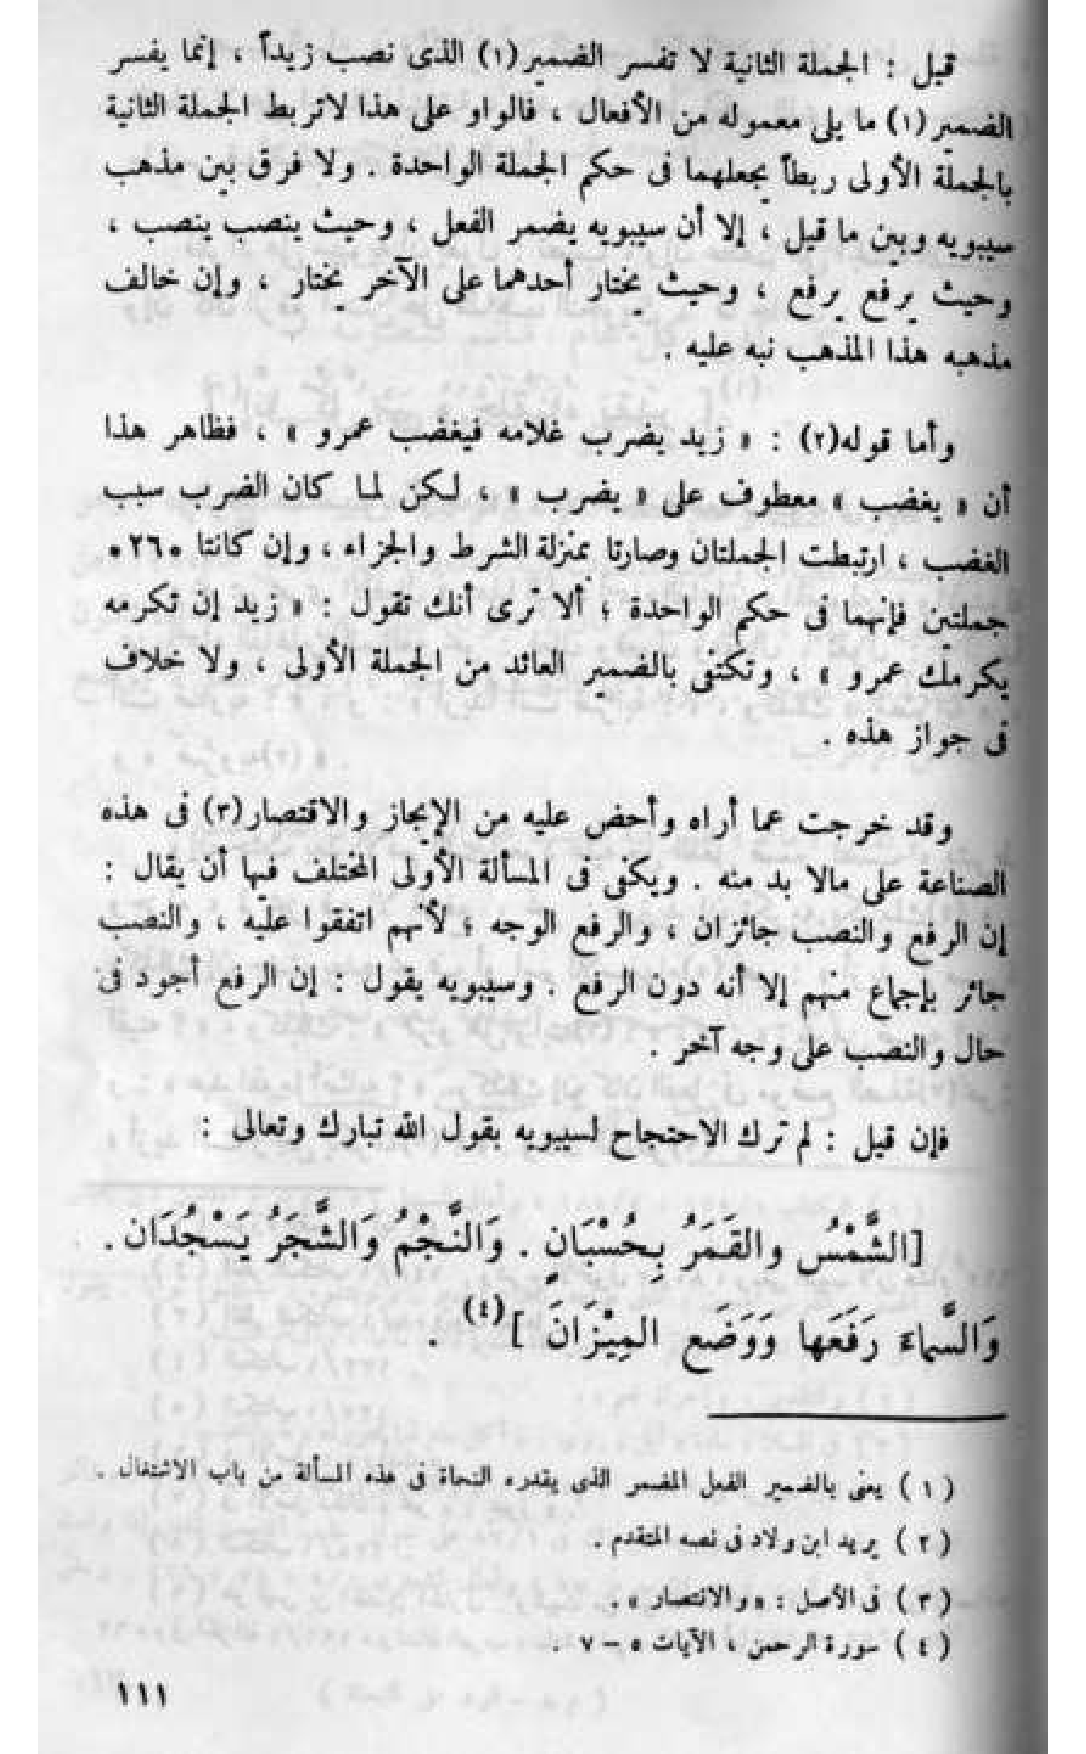 قيل : الجملة الثانية لا تفسر الضمير(١) الذى نصب زيداً ، إنما يفسر
الضمير(١) ما يلى معموله من الأفعال ، فالواو على هذا لا تربط الجملة الثانية
بالجملة الأولى ربطاً يجعلهما فى حكم الجملة الواحدة . ولا فرق بين مذهب
سيبويه وبين ما قيل ، إلا أن سيبويه يضمر الفعل ، وحيث ينصب ينصب ،
وحيث يرفع يرفع ، وحيث يختار أحدهما على الآخر يختار ، وإن خالف
مذهبه هذا المذهب نبه عليه .
وأما قوله(٢) : « زيد يضرب غلامه فيغضب عمرو » ، فظاهر هذا
أن « يغضب » معطوف على « يضرب » ، لكن لما كان الضرب سبب
الغضب ، ارتبطت الجملتان وصارتا بمنزلة الشرط والجزاء ، وإن كانتا *٢٦*
جملتين فإنهما فى حكم الواحدة ؛ ألا ترى أنك تقول : « زيد إن تكرمه
يكرمك عمرو » ، وتكتفى بالضمير العائد من الجملة الأولى ، ولا خلاف
فى جواز هذه .
وقد خرجت عما أراه وأحض عليه من الإيجاز والاقتصار(٣) فى هذه
الصناعة على مالا بد منه . ويكفى فى المسألة الأولى المختلف فيها أن يقال :
إن الرفع والنصب جائزان ، والرفع الوجه ؛ لأنهم اتفقوا عليه ، والنصب
جائر بإجماع منهم إلا أنه دون الرفع . وسيبويه يقول : إن الرفع أجود فى
حال والنصب على وجه آخر .
فإن قيل : لم ترك الاحتجاج لسيبويه بقول الله تبارك وتعالى :
[الشَّمْسُ والقَمَرُ بِحُسْبَانٍ . وَالنَّجْمُ وَالشَّجَرُ يَسْجُدَان .
وَالسَّماءَ رَفَعَها وَوَضَع المِيْزَانَ ](٤) .
( ١ ) يعنى بالضمير الفعل المفسر الذى يقدره النحاة فى هذه المسألة من باب الاشتغال .
( ٢ ) يريد ابن ولاد فى نصه المتقدم .
( ٣ ) فى الأصل : « والانتصار » .
( ٤ ) سورة الرحمن ، الآيات ٥ – ٧ .
١١١